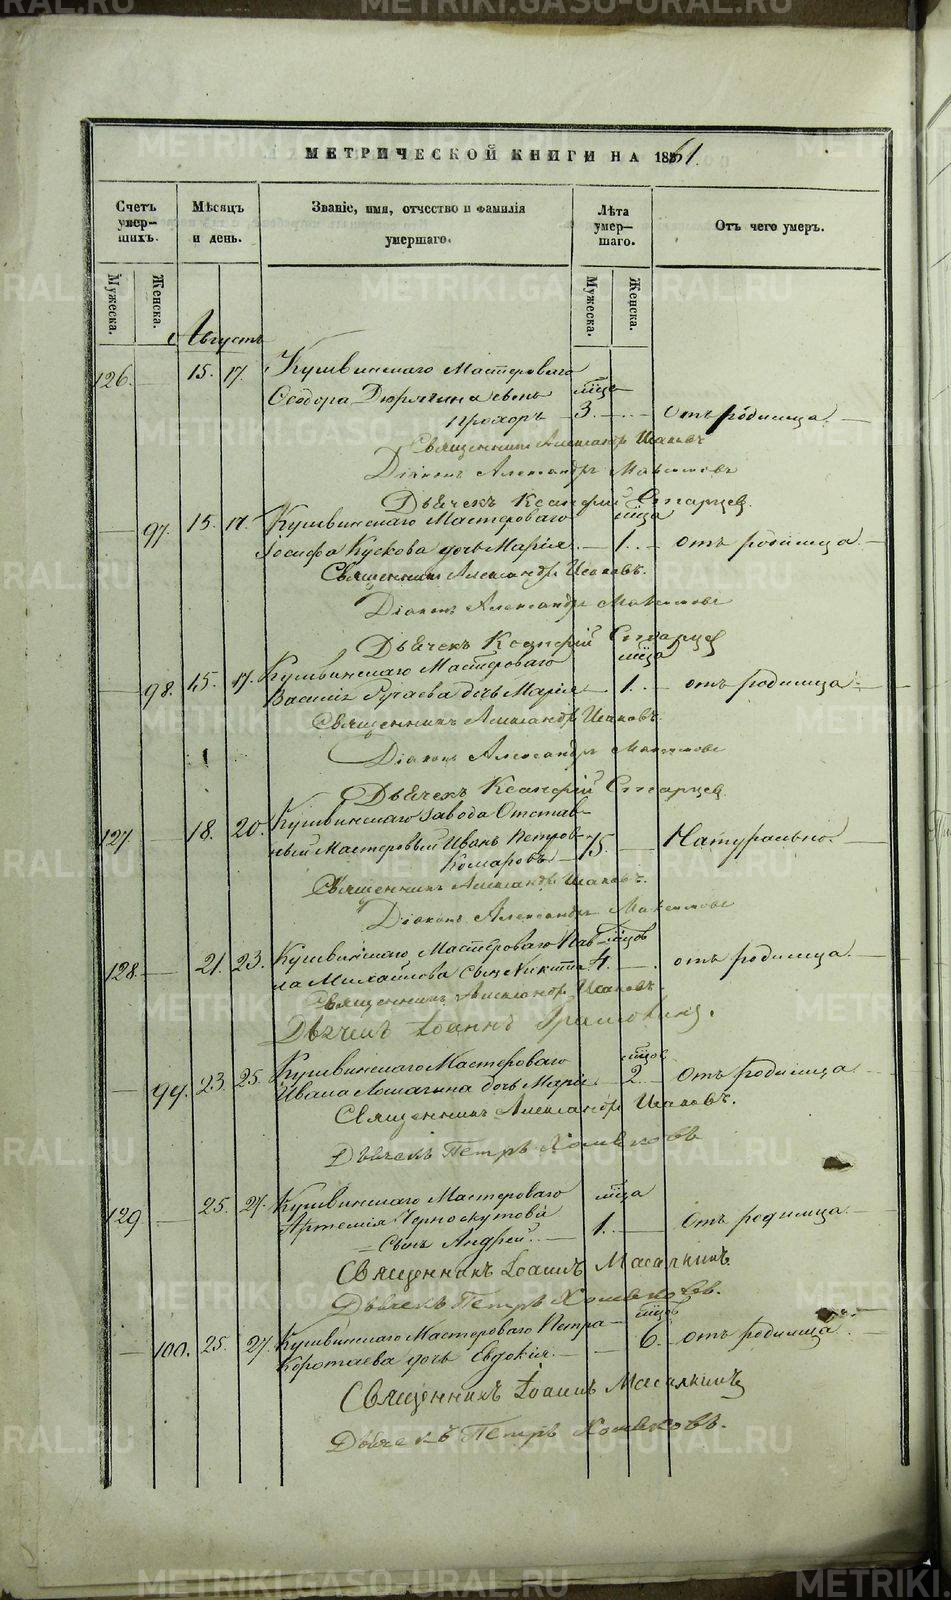 МЕТРИЧЕСКОЙ КНИГИ НА 1861.
Счетъ умер-шихъ.
Мѣсяцъ и день.
Званіе, имя, отчество и фамилія умершаго.
Лѣта умер-шаго.
Отъ чего умеръ.
Мужеска.
Женска.
Мужеска.
Женска.
Августъ
126. 15. 17. Кушвинскаго Мастероваго
Ѳеодора Дюрягина сынъ мца
Прохоръ 3. отъ родимца.
Священникъ Александръ Исаковъ
Діаконъ Александръ Максимовъ
Дьячекъ Ксанфій Старцев.
97. 15. 17. Кушвинскаго Мастероваго мца
Іосифа Кускова дочь Марія 1. отъ родимца.
Священникъ Александръ Исаковъ.
Діаконъ Александръ Максимовъ
Дьячекъ Ксанфій Старцев
98. 15. 17. Кушвинскаго Мастероваго мца
Василія дочь Марія 1. отъ родимца.
Священникъ Александръ Исаковъ.
Діаконъ Александръ Максимовъ
Дьячекъ Ксанфій Старцев
127. 18. 20. Кушвинскаго завода Отстав-
ный Мастеровый Иванъ Петров-
Комаровъ 75. Натурально.
Священникъ Александръ Исаковъ.
Діаконъ Александръ Максимовъ
128. 21. 23. Кушвинскаго Мастероваго Пав- мцов
ла Михайлова сынъ Никита 4. отъ родимца.
Священникъ Александръ Исаковъ.
Дьячекъ Іоаннъ
99. 23. 25. Кушвинскаго Мастероваго мцов
Ивана Ломагина дочь Марія 2. отъ родимца
Священникъ Александръ Исаковъ.
Дьячекъ Петръ Хомяковъ
129 25. 27. Кушвинскаго Мастероваго мца
Артемія Черноскутова 1. отъ родимца
Сынъ Андрей.
Священникъ Іоаннъ Масалкинъ
Дьячекъ Петръ Хомяковъ.
100. 25. 27. Кушвинскаго Мастероваго Петра мцов
Коротаева дочь Евдокія. 6. отъ родимца.
Священникъ Іоаннъ Масалкинъ
Дьячекъ Петръ Хомяковъ.
METRIKI.GASO-URAL.RU